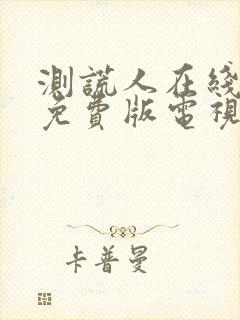 測謊人在綫
免費版電視
卡普曼